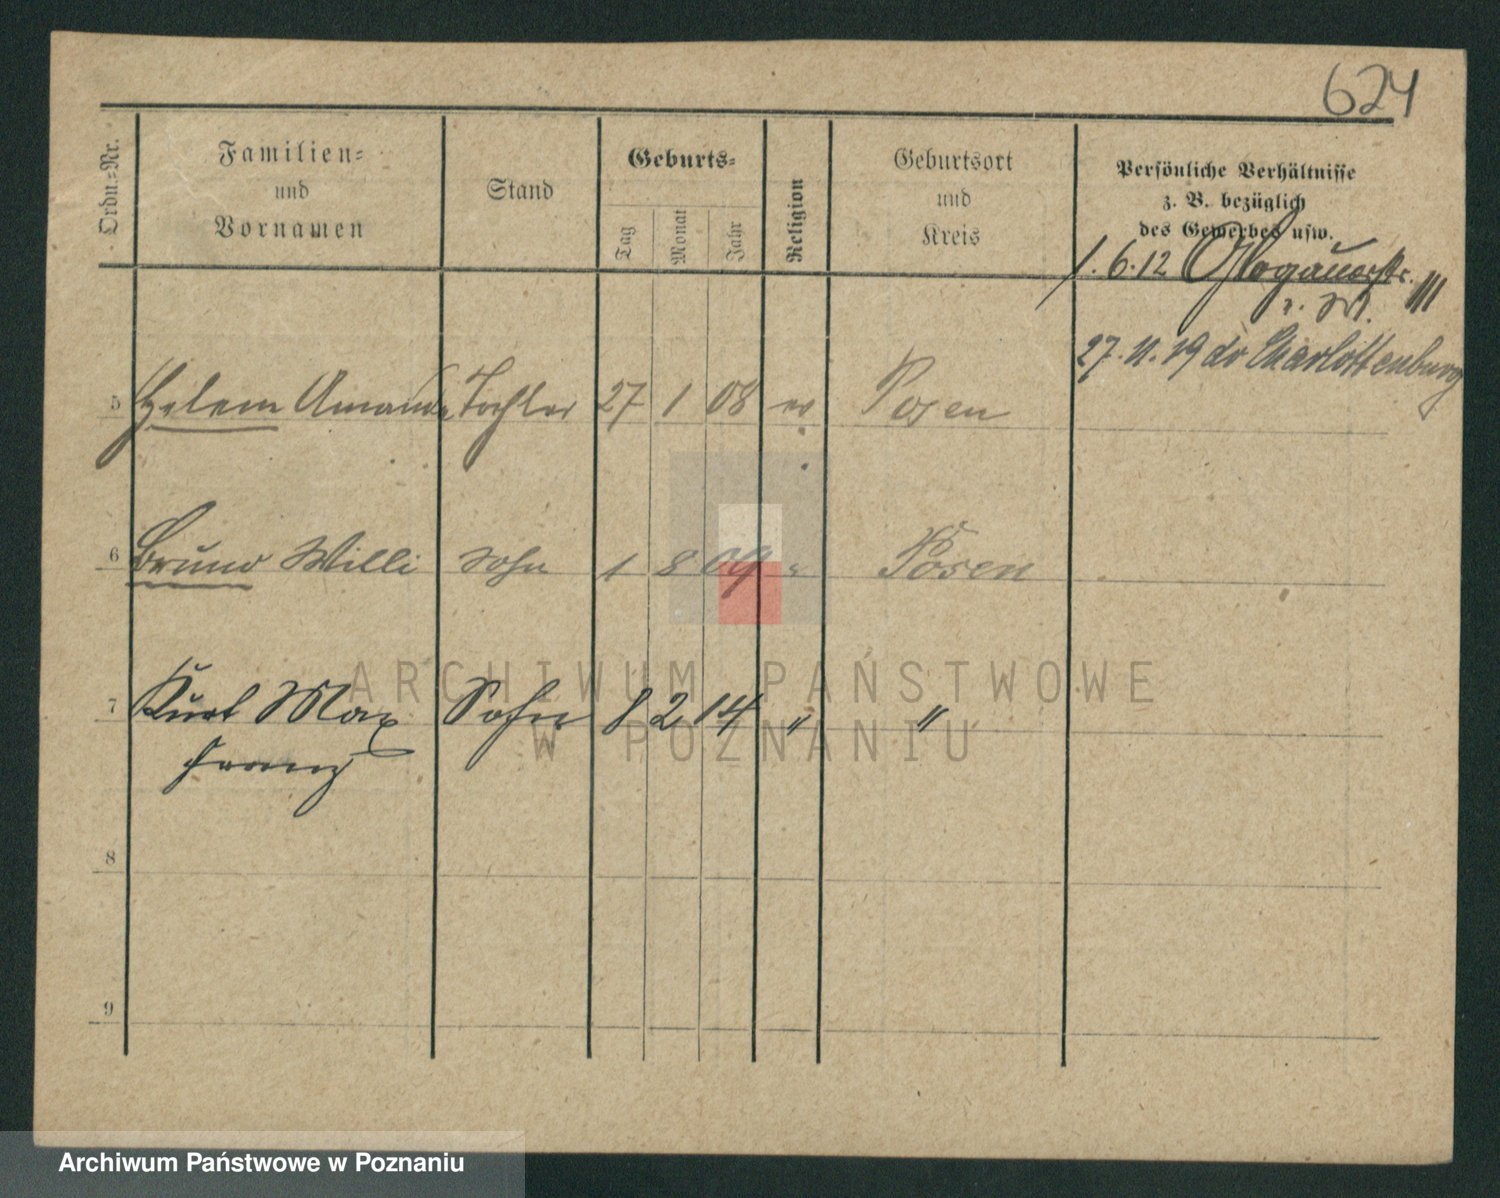 624
Ordn.-Nr.
Familien-
und
Vornamen
Stand
Geburts-
Tag
Monat
Jahr
Religion
Geburtsort
und
Kreis
Persönliche Verhältnisse
z. B. bezüglich
des Gewerbes usw.
1.6.12 Glogauerstr. 111
27.11.19 Charlottenburg
5 Helene Amanda Tochter 27 1 08 ev Posen
6 Bruno Willi Sohn 1 8 09 " Posen
7 Kurt Max Sohn 8 2 14 " "
Franz
8
9
ARCHIWUM PAŃSTWOWE
W POZNANIU
Archiwum Państwowe w Poznaniu